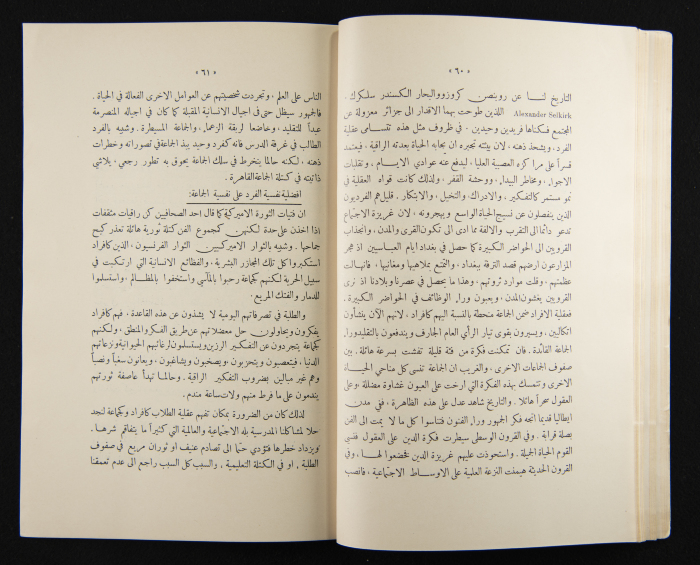 « ٦٠ »
التاريخ لنا عن روبنصن كروزو والبحار الكسندر سلكرك .
Alexander Selkirk اللذين طوحت بهما الاقدار الى جزائر معزولة عن
المجتمع فسكناها فريدين وحيدين . في ظروف مثل هذه تتسامى عقلية
الفرد . ويشحذ ذهنه ، لان بيئته تجبره ان يجابه الحياة بعدته الراقية . فيعتمد
قسراً على مراكزه العصبية العليا ، ليدفع عنه عوادي الايام ، وتقلبات
الاجواء ومخاطر البيداء ووحشة القفر . ولذلك كانت قواه العقلية في
نمو مستمر كالتفكير . والادراك . والتخيل ، والابتكار . قليل هم الفرديون
الذين ينفصلون عن نسيج الحياة الواسع ويهجرونه ، لان غريزة الاجتماع
تدعو دائما الى التقرب والالفة مما ادى الى تكون القرى والمدن ، وانجذاب
القرويين الى الحواضر الكبيرة كما حصل في بغداد ايام العباسيين اذ هجر
المزارعون ارضهم قصد الترفه ببغداد ، والتمتع بملاهيها ومغانيها ، فانهالت
عظمتهم . وقلت موارد ثروتهم ، وهذا ما يحصل في عصرنا وبلادنا اذ نرى
القرويين يغشون المدن ، ويعبون وراء الوظائف في الحواضر الكبيرة .
فعقلية الافراد ضمن الجماعة منحطة بالنسبة اليهم كافراد ، لانهم ينشأون
اتكاليين ، ويسيرون بقوى تيار الرأي العام الجارف ويندفعون بالتقليد وراء
الجماعة القائدة . فان تمكنت فكرة من فئة قليلة تفشت بسرعة هائلة . بين
صفوف الجماعات الاخرى ، والغريب ان الجماعة تنسى كل مناحي الحياة
الاخرى وتتمسك بهذه الفكرة التي ارخت على العيون غشاوة مضللة ، وعلى
العقول سحراً هائلا . والتاريخ شاهد عدل على هذه الظاهرة ، ففي مدن
ايطاليا قديما اتجه فكر الجمهور وراء الفنون فتناسوا كل ما لا يمت الى الفن
بصلة قرابة . وفي القرون الوسطى سيطرت فكرة الدين على العقول فنسي
القوم الحياة الجميلة . واستحوذت عليهم غريزة الدين فخضعوا لها ، وفي
القرون الحديثة هيمنت النزعة العلمية على الاوساط الاجتماعية ، فانصب
« ٦١ »
الناس على العلم ، وتجردت شخصيتهم عن العوامل الاخرى الفعالة في الحياة .
فالجمهور سيظل حتى في اجيال الانسانية المقبلة كما كان في اجياله المنصرمة
عبداً للتقليد ، وخاضعا لربقة الزعماء والجماعة المسيطرة . وشبيه بالفرد
الطالب في غرفة الدرس فانه كفرد وحيد يبذ الجماعة في تصوراته وخطرات
ذهنه ، لكنه حالما ينخرط في سلك الجماعة يحوق به تطور رجعي ، يلاشي
ذاتيته في كتلة الجماعة القاهرة .
افضلية نفسية الفرد على نفسية الجماعة :
ان فتيات الثورة الاميركية كما قال احد الصحافيين كن راقيات مثقفات
اذا اخذن على حدة لكنهن كمجموع الفن كتلة ثورية هائلة تعذر كبح
جماحها . وشبيه بالثوار الاميركيين الثوار الفرنسيون ، الذين كافراد
استنكروا كل تلك المجازر البشرية ، والفظائع الانسانية التي ارتكبت في
سبيل الحرية لكنهم كجماعة رحبوا بالمآسي واستخفوا بالمظالم ، واستسلموا
للدمار والفتك المريع .
والطلبة في تصرفاتهم اليومية لا يشذون عن هذه القاعدة . فهم كافراد
يفكرون ويحاولون حل معضلاتهم عن طريق الفكر والمنطق ، ولكنهم
كجماعة يتجردون عن التفكير الرزين ويستسلمون لرغائبهم الحيوانية ونزعاتهم
الدنيا ، فيتعصبون ويتحزبون ، ويصخبون ويشاغبون ، ويعانون سغباً ونصباً
وهم غير مبالين بضروب التفكير الراقية . وحالما تهدأ عاصفة ثورتهم
يندمون على ما فرط منهم ولات ساعة مندم .
لذلك كان من الضرورة بمكان تفهم عقلية الطلاب كافراد وكجماعة لنجد
حلا لمشاكلنا المدرسية بله الاجتماعية والعالمية التي كثيراً ما يتفاقم شرها .
ويزداد خطرها فتؤدي حتما الى تصادم عنيف او ثوران مريع في صفوف
الطلبة ، او في الكتلة التعليمية . والسبب كل السبب راجع الى عدم تعمقنا